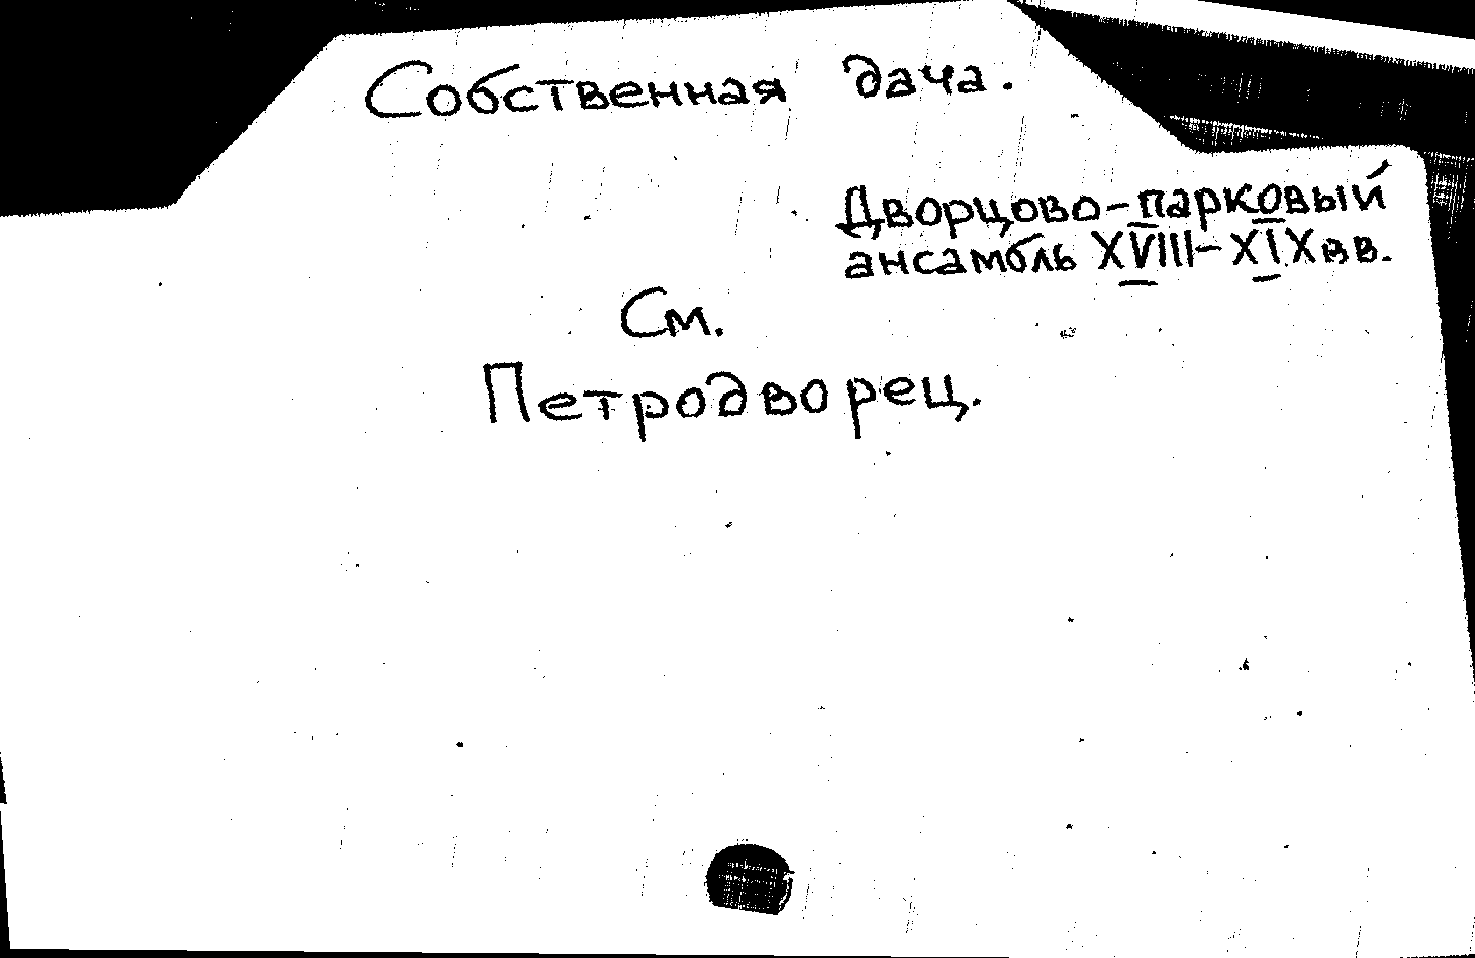 Собственная дача.
Дворцово-парковый
ансамбль XVIII-XIX вв.
См.
Петродворец.